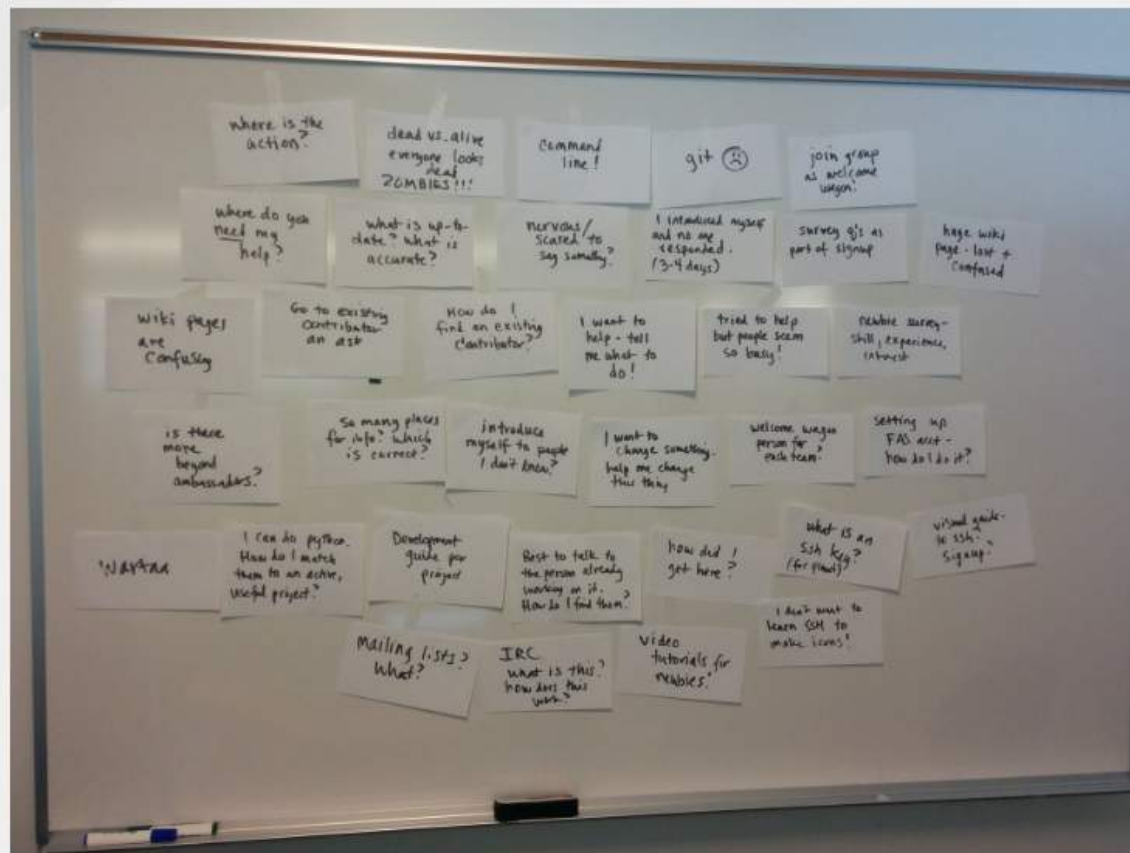 where is the
action?
dead vs. alive
everyone looks
dead
ZOMBIES!!!
command
line!
git ☹
join group
as welcome
wagon!
where do you
need my
help?
what is up-to-
date? what is
accurate?
nervous/
scared to
say something?
I introduced myself
and no one
responded.
(3-4 days)
survey q's as
part of signup
huge wiki
page - lost +
confused
wiki pages
are
confusing
Go to existing
contributor
an ask
How do I
find an existing
contributor?
I want to
help - tell
me what to
do!
tried to help
but people seem
so busy!
newbie survey-
skill, experience,
interest
is there
more
beyond
ambassadors?
so many places
for info? which
is correct?
introduce
myself to people
I don't know?
I want to
change something.
help me change
this thing
welcome wagon
person for
each team?
setting up
FAS acct -
how do I do it?
I can do python.
How do I match
them to an active,
useful project?
Development
guide per
project
Best to talk to
the person already
working on it.
How do I find them?
how did I
get here?
what is an
ssh key?
visual guide-
to ssh?
signup?
I don't want to
learn SSH to
make icons!
Mailing lists?
What?
IRC
what is this?
how does this
work?
video
tutorials for
newbies!